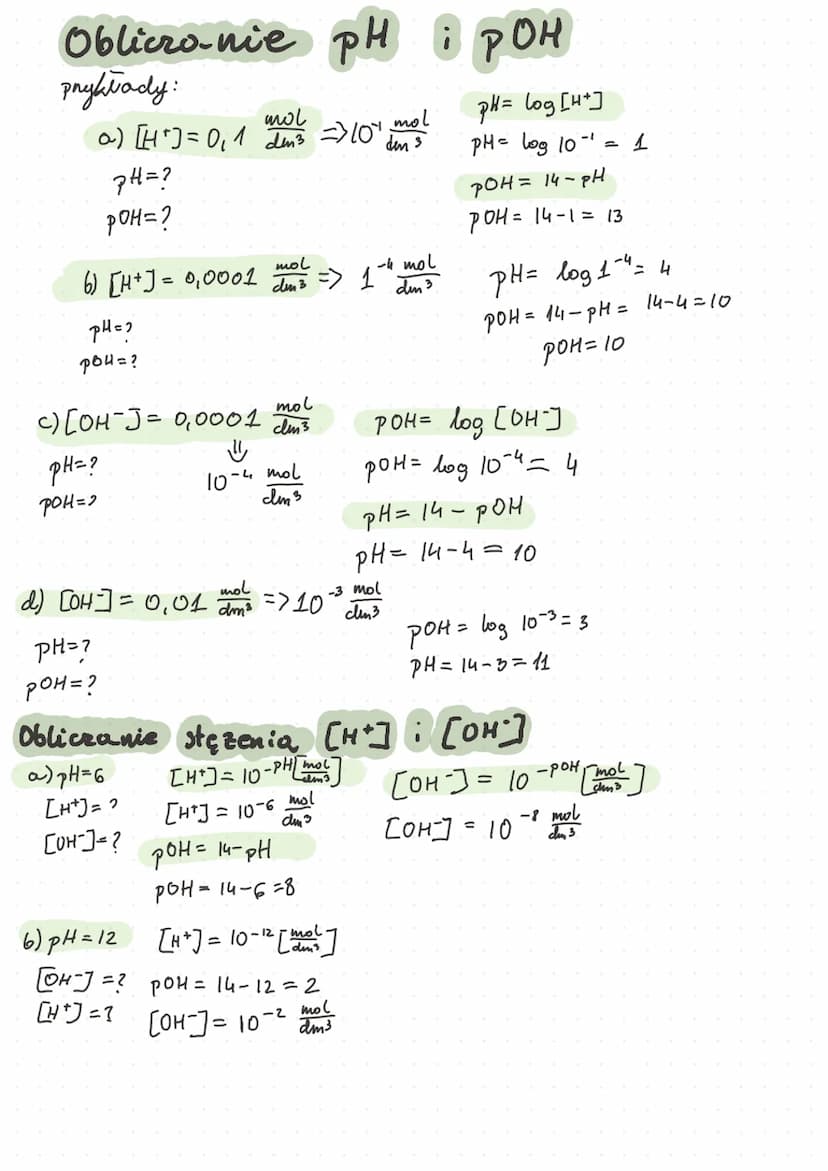 Obliczanie pH i pOH
przykłady:
a) [H⁺] = 0,1 mol/dm³ => 10⁻¹ mol/dm³
pH = ?
pOH = ?
pH = log [H⁺]
pH = log 10⁻¹ = 1
pOH = 14 - pH
pOH = 14 - 1 = 13
b) [H⁺] = 0,0001 mol/dm³ => 1⁻⁴ mol/dm³
pH = ?
pOH = ?
pH = log 1⁻⁴ = 4
pOH = 14 - pH = 14 - 4 = 10
pOH = 10
c) [OH⁻] = 0,0001 mol/dm³
⇓
10⁻⁴ mol/dm³
pH = ?
pOH = ?
pOH = log [OH⁻]
pOH = log 10⁻⁴ = 4
pH = 14 - pOH
pH = 14 - 4 = 10
d) [OH⁻] = 0,01 mol/dm³ => 10⁻³ mol/dm³
pH = ?
pOH = ?
pOH = log 10⁻³ = 3
pH = 14 - 3 = 11
Obliczanie stężenia [H⁺] i [OH⁻]
a) pH = 6
[H⁺] = ?
[OH⁻] = ?
[H⁺] = 10^-pH [mol/dm³]
[H⁺] = 10⁻⁶ mol/dm³
pOH = 14 - pH
pOH = 14 - 6 = 8
[OH⁻] = 10^-pOH [mol/dm³]
[OH⁻] = 10⁻⁸ mol/dm³
b) pH = 12
[OH⁻] = ?
[H⁺] = ?
[H⁺] = 10⁻¹² [mol/dm³]
pOH = 14 - 12 = 2
[OH⁻] = 10⁻² mol/dm³